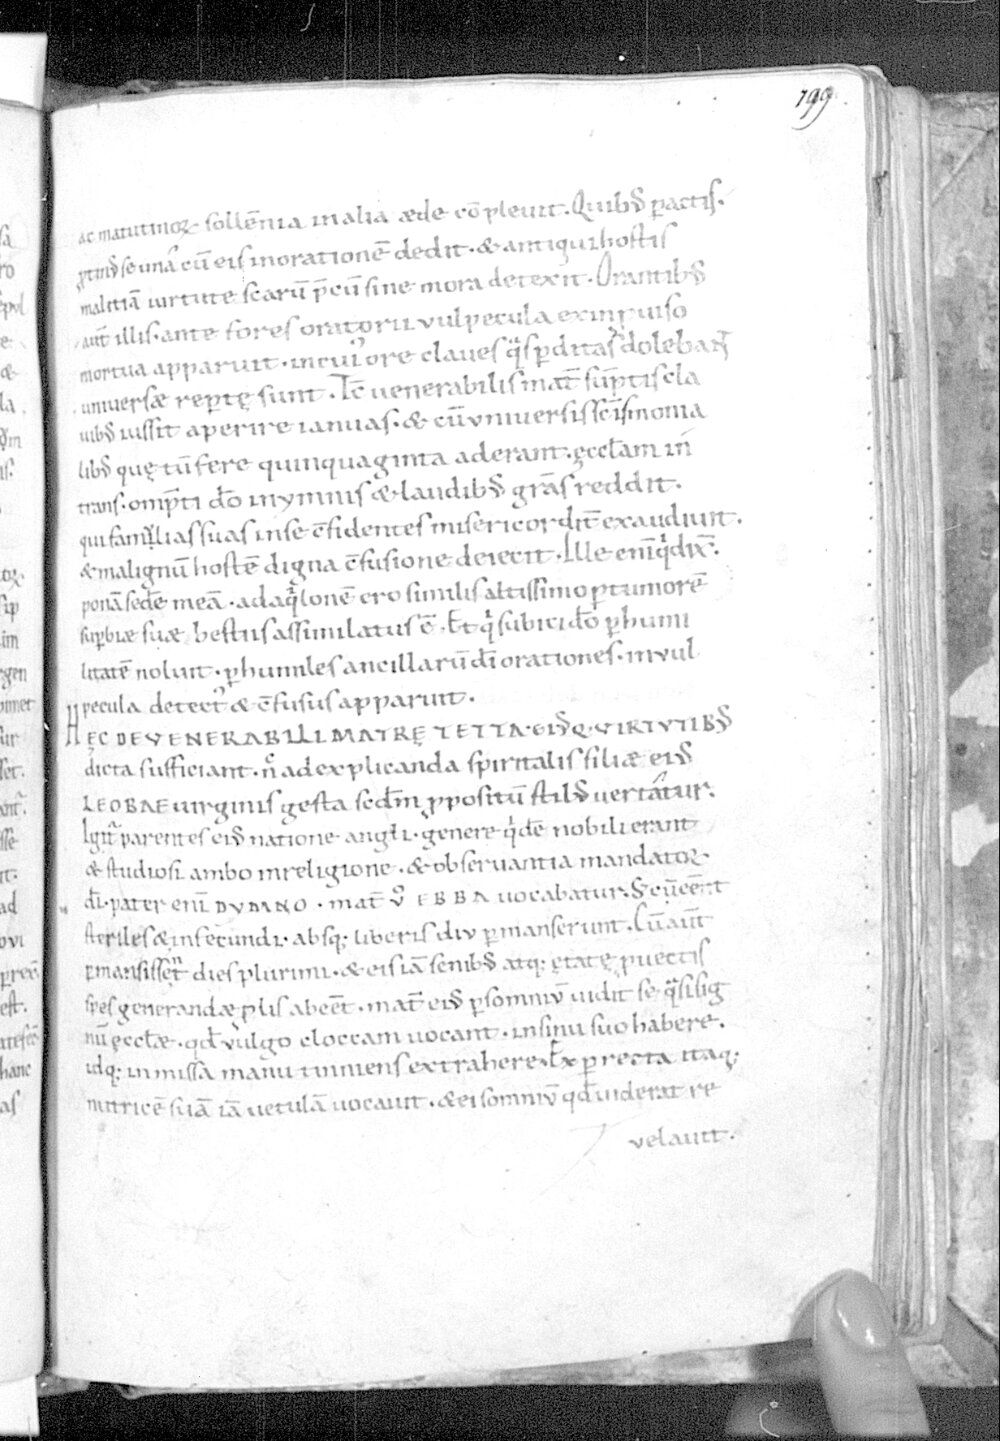 199
ac matutinoꝝ sollēnia in alia æde cōplevit. Quibꝰ pactis.
ꝓtinꝰ se una cū eis in orationē dedit. & antiqui hostis
malitiā virtute scarū p̄cū sine mora detexit. Orantibꝰ
aūt illis. ante fores oratorii vulpecula ex inpviso
mortua apparuit. in cuiꝰ ore claves q̄s pditas dolebant
universæ reptę sunt. Tc̄ venerabilis mat̄ sūptis cla
vibꝰ iussit aperire ianuas. & cū vniversis sc̄ismonia
libꝰ quę tūc fere quinquaginta aderant. ęccłam in
trans. omp̄ti dō in ymnis & laudibꝰ grās reddit.
qui famulas suas in se c̄fidentes misericordit̄ exaudivit.
& malignū hostē digna c̄fusione deiecit. Ille eni q̄ dix̄.
ponā sedē meā. ad aq̇lonē ero similis altissimo p tumorē
supbiæ suæ bestiis assimilatus ē. Et q̇ subici dō p humi
litatē noluit. p humiles ancillarū dī orationes. in vul
pecula detectꝰ & c̄fusus apparuit.
HĘC DE VENERABILI MATRĘ TETTA. EIꝰQ. VIRTVTIBꝰ
dicta sufficiant. n̄c ad explicanda spiritalis filiæ eiꝰ
LEOBAE virginis gesta sedm ꝓpositū stilꝰ vertatur.
Igit̄ parentes eiꝰ natione angli. genere q̇dē nobili erant
& studiosi ambo in religione. & observantia mandatoꝝ
dī. pater eni DVDINO. mat̄ v̊ EBBA vocabatur. S; cū eēnt
steriles & infecundi. absq; liberis div pmanserunt. Cū aūt
pmansissent dies plurimi. & eis iā senibꝰ atq; ętatę ꝓvectis
spes generandæ plis abeēt. mat̄ eiꝰ p somniū vidit se q̇si sig
nū ęccłæ. qđ vulgo cloccam vocant. in sinu suo habere.
idq; inmissa manu tinniens extrahere. Exprecta itaq;
nutricē suā iā vetulā vocavit. & ei somniū qđ viderat re
velavit.